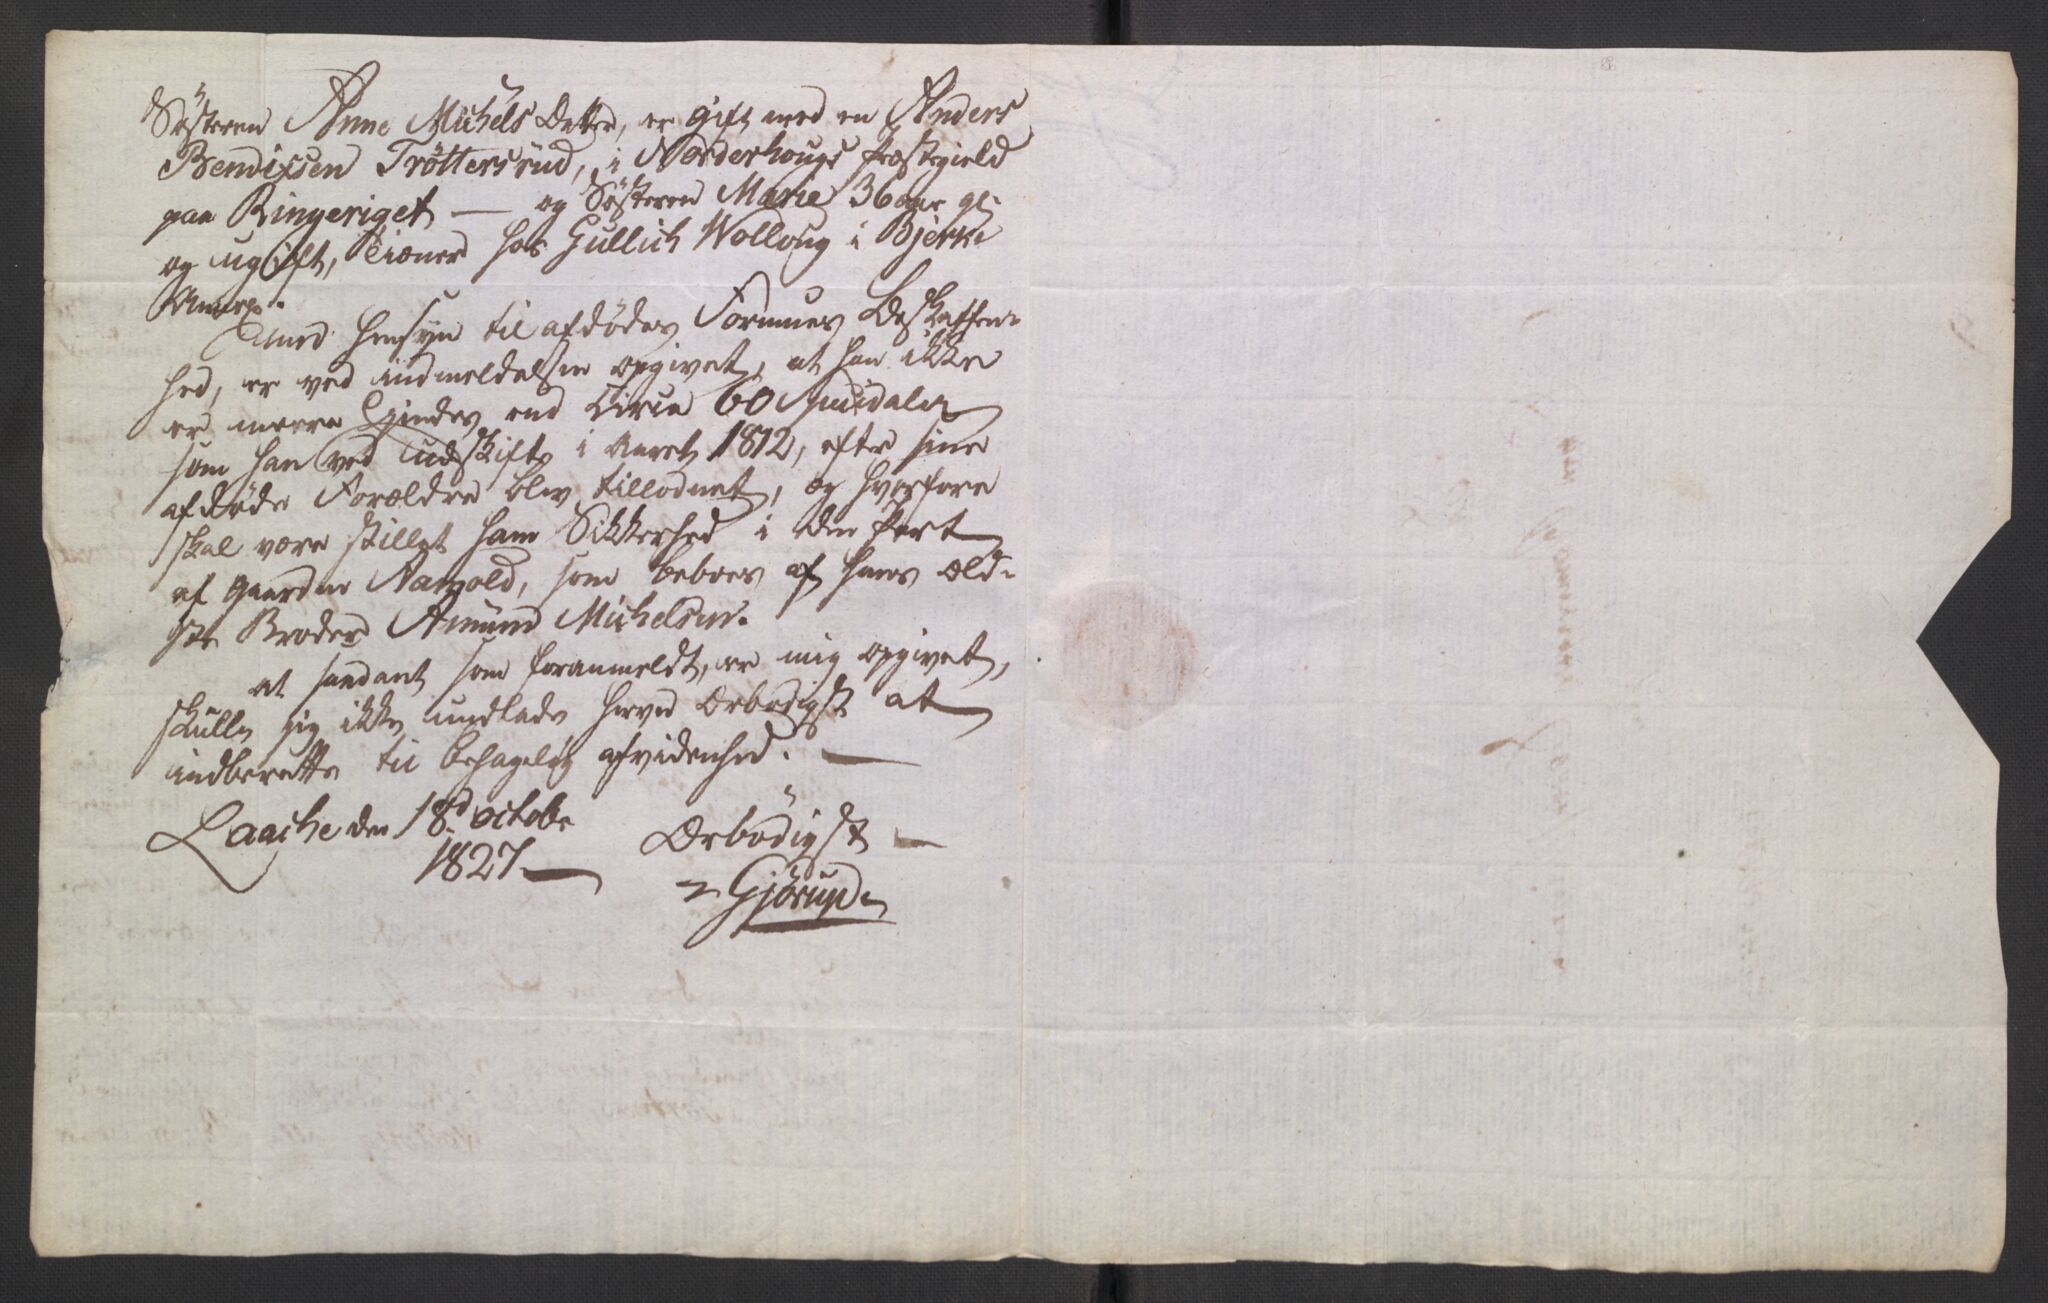 Søsteren Anne Michels Datter, er gift med en Anders
Bendixsen Trøttersrud, i Norderhougs Præstegield
paa Ringeriget — og Søsteren Marie 36 aar gl:
og ugift, tiener hos Gullich Wolloug i Bjerke
Annex.
Med Hensyn til afdødes Formues Beskaffen-
hed, er ved indmeldelsen opgivet, at han ikke
er meere Ejendes end Circa 60 Speciedaler
som han ved udskifte i Aaret 1812, efter sine
afdøde Forældre blev tillodnet, og hvorfore
skal være stillet ham Sikkerhed i den Part
af Gaarden Narvold, som beboes af hans æld-
ste Broder Amund Michelsen.
at saadant som foranmeldt, er mig opgivet,
skulle jeg ikke undlade herved Ærbødigst at
indberette til behagelig afvidenhed. —
Laache den 18d octobr
1827 —
Ærbødigst —
Gjørup